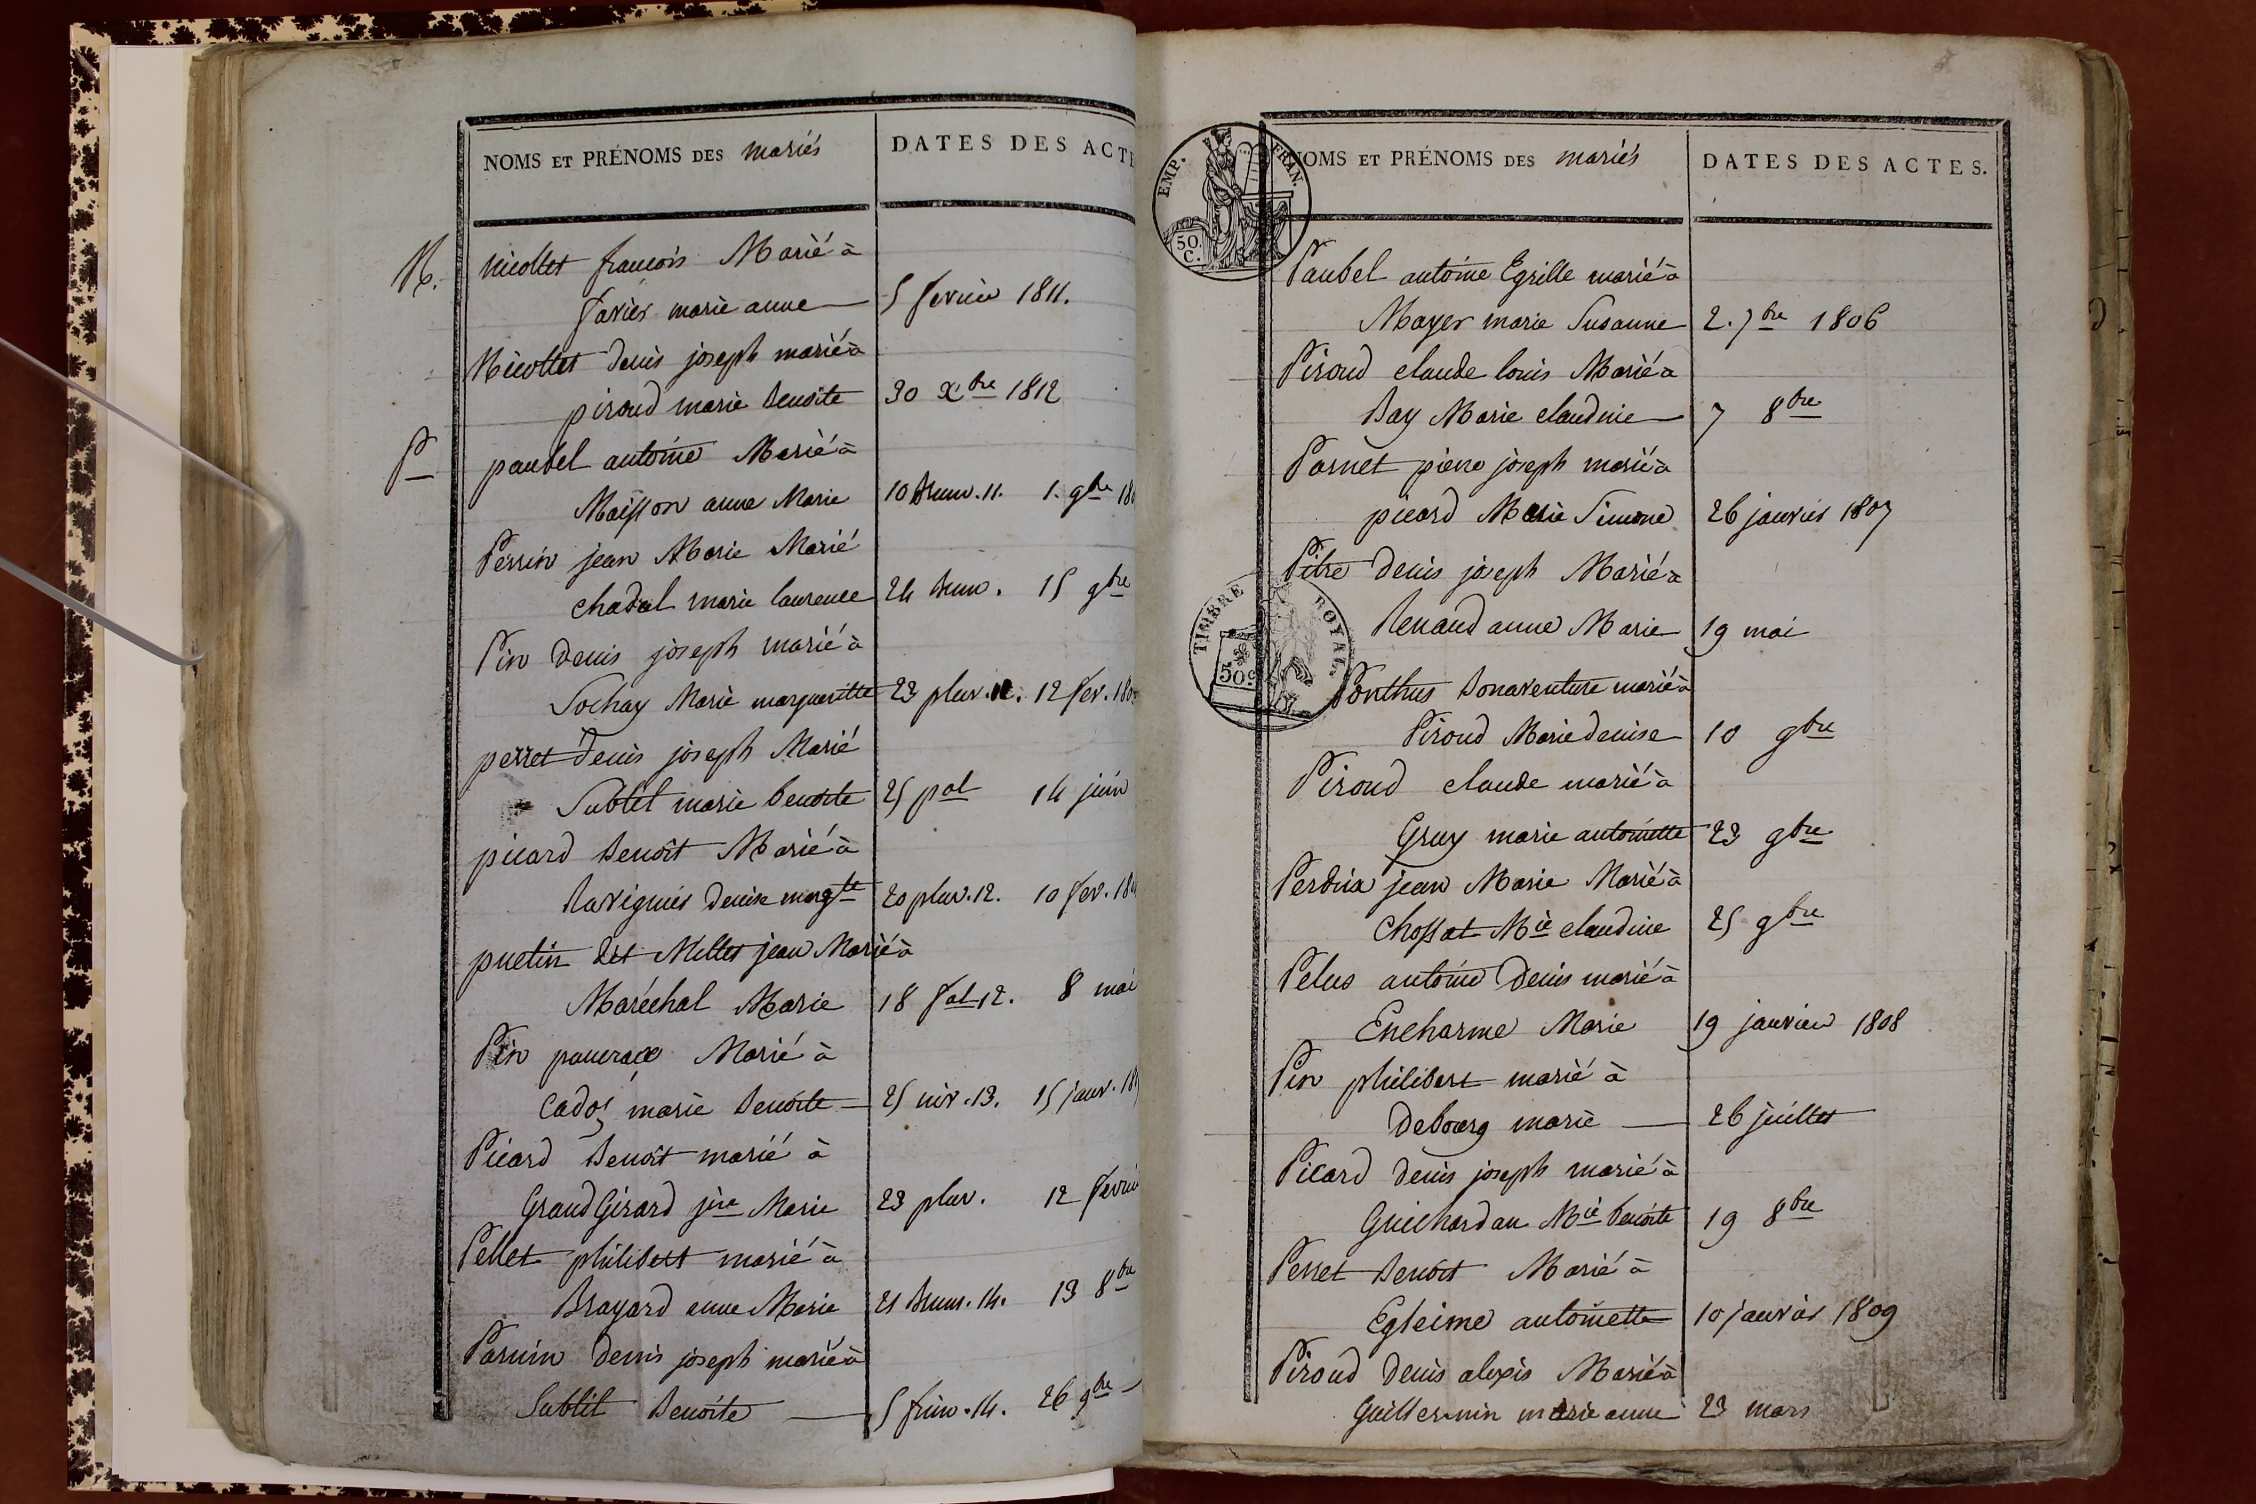 NOMS ET PRÉNOMS DES mariés
DATES DES ACTE
N.
Nicollet francois Marié à
favier marie anne 5 fevrier 1811.
Nicollet denis joseph marié à
piroud marie Benoite 30 Xbre 1812
P
paubel antoine Marié à
Maisson anne Marie 10 Brum. 11. 1. 9bre 180
Perrin jean Marie Marié
chadal marie laurence 24 Brum. 15 9bre
Pin denis joseph marié à
Sochay Marie margueritte 23 pluv. 12. 12 fev. 180
perret denis joseph Marié
Sublet marie benoite 25 pal 14 juin
picard Benoît Marié à
Ravignié denise margte 20 pluv. 12. 10 fev. 180
puetin dit Millet jean Marié à
Maréchal Marie 18 fal 12. 8 mai
Pin pancrace Marié à
Cadoz marie Benoite 25 niv. 13. 15 janv. 18
Picard Benoit marié à
Grand Girard jne Marie 23 pluv. 12 fevrie
Pellet philibert marié à
Brayard anne Marie 21 Brum. 14. 13 8bre
Parnin denis joseph marié à
Sublet Benoite 5 frim. 14. 26 9bre
EMP. FRAN.
50. C.
NOMS ET PRÉNOMS DES mariés
DATES DES ACTES.
Paubel antoine Egrille marié à
Mayer marie Susanne 2. 7bre 1806
Piroud claude louis Marié à
Bay Marie claudine 7 8bre
Parnet pierre joseph marié à
picard Marie Simone 26 janvier 1807
Pitre denis joseph Marié à
Renaud anne Marie 19 mai
TIMBRE ROYAL
50c
Ponthus Bonaventure marié à
Piroud Marie denise 10 9bre
Piroud claude marié à
Gruy marie antoinette 23 9bre
Perdrix jean Marie Marié à
Chossat Mie claudine 25 9bre
Pelus antoine denis marié à
Encharme Marie 19 janvier 1808
Pin philibert marié à
debourg marie 26 juillet
Picard denis joseph marié à
Guichardan Mie benoite 19 8bre
Perret Benoit Marié à
Egleime antoinette 10 janvier 1809
Piroud denis alexis Marié à
Guillermin marie anne 23 mars